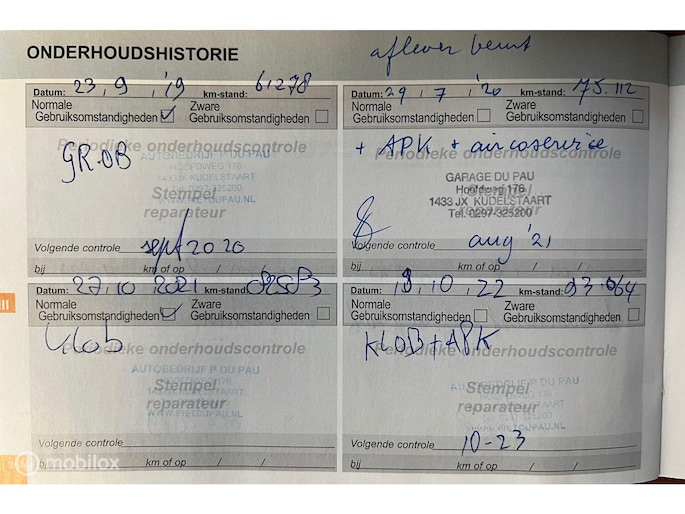 ONDERHOUDSHISTORIE
aflever beurt
Datum: 23, 9, '19 km-stand:
Normale Gebruiksomstandigheden Zware Gebruiksomstandigheden
Periodieke onderhoudscontrole
GR.OB
AUTOBEDRIJF P DU PAU
HOOFDWEG 176
KUDELSTAART
Tel. 0297-325200
Stempel
reparateur
Volgende controle sept 2020
bij km of op / /
Datum: 29, 7, '20 km-stand: 75.112
Normale Gebruiksomstandigheden Zware Gebruiksomstandigheden
+ APK + aircoservice
Periodieke onderhoudscontrole
GARAGE DU PAU
Hoofdweg 176
1433 JX KUDELSTAART
Tel. 0297-325200
Stempel
reparateur
Volgende controle aug '21
bij km of op / /
Datum: 27, 10, 2021 km-stand:
Normale Gebruiksomstandigheden Zware Gebruiksomstandigheden
Klob
Periodieke onderhoudscontrole
AUTOBEDRIJF P DU PAU
Stempel
reparateur
WWW.PIETDUPAU.NL
Volgende controle
bij km of op / /
Datum: 10, 22 km-stand: 93.064
Normale Gebruiksomstandigheden Zware Gebruiksomstandigheden
KLOB + APK
Periodieke onderhoudscontrole
AUTOBEDRIJF P DU PAU
Stempel
reparateur
Volgende controle 10-23
bij km of op / /
III
mobilox